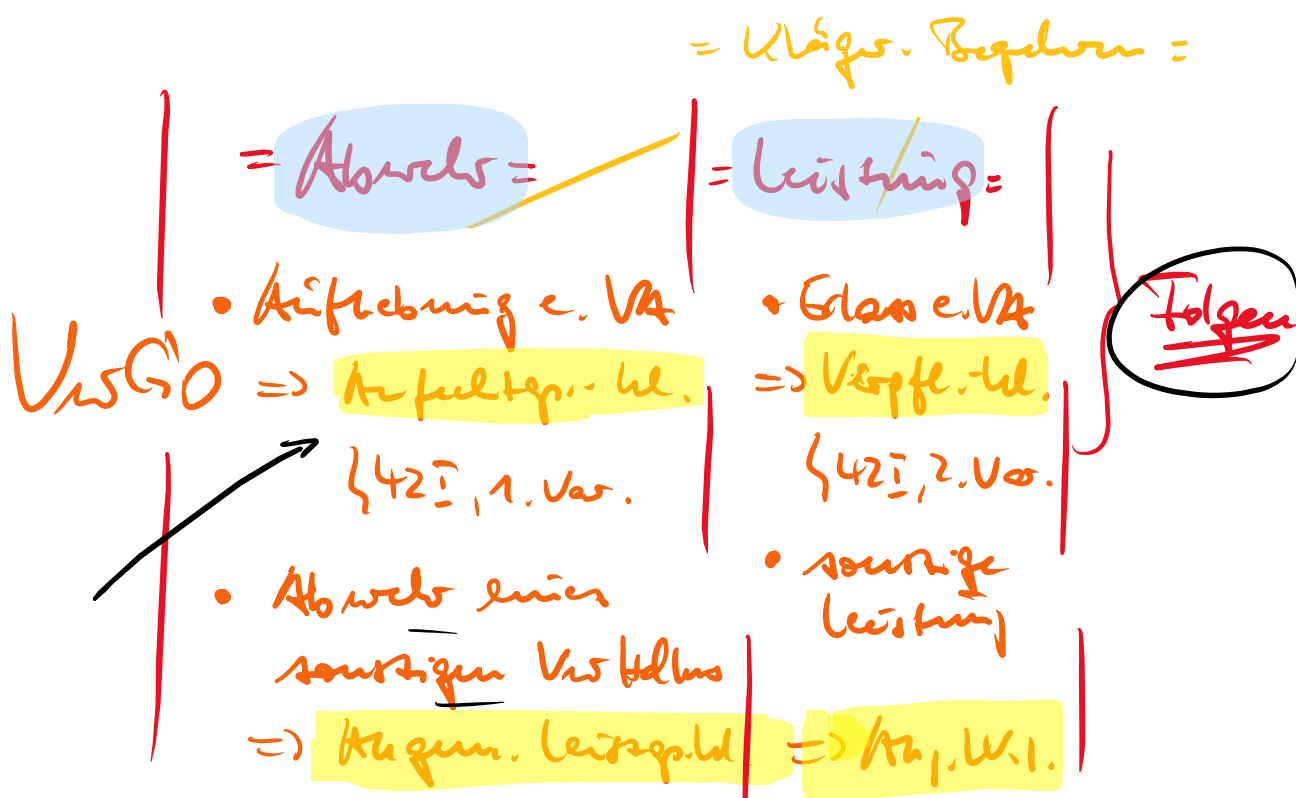 = Kläger. Begehren =
= Abwehr =
= Leistung =
VwGO
• Aufhebung e. VA
=> Anfechtgs.-Kl.
§ 42 I, 1. Var.
• Abwehr eines
sonstigen VwHdlns
=> Allgem. Leistgs.kl.
• Erlass e. VA
=> Verpfl.-Kl.
§ 42 I, 2. Var.
• sonstige
Leistung
=>
Folgen